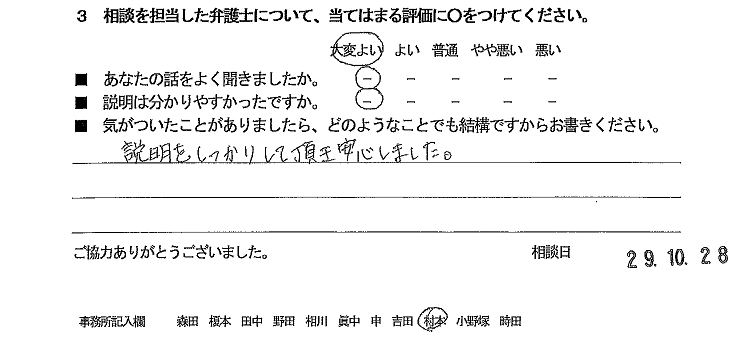 3 相談を担当した弁護士について、当てはまる評価に○をつけてください。
大変よい よい 普通 やや悪い 悪い
■ あなたの話をよく聞きましたか。 － － － － －
■ 説明は分かりやすかったですか。 － － － － －
■ 気がついたことがありましたら、どのようなことでも結構ですからお書きください。
説明をしっかりして頂き安心しました。
ご協力ありがとうございました。 相談日 29.10.28
事務所記入欄 森田 榎本 田中 野田 相川 眞中 申 吉田 村本 小野塚 時田